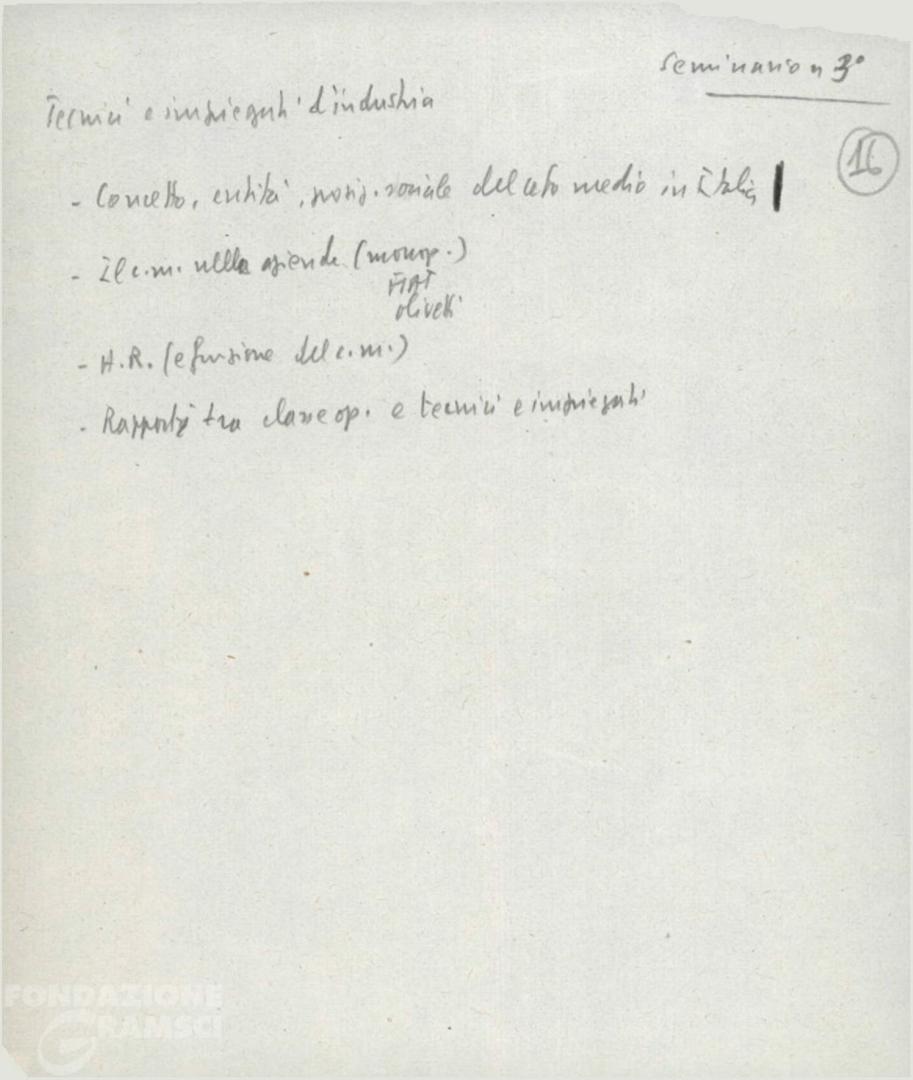 Seminario n 3°
16
Tecnici e impiegati d'industria
- Concetto, entità, posiz. sociale del ceto medio in Italia
- Il c.m. nelle aziende (monop.)
FIAT
Olivetti
- H.R. (e funzione del c.m.)
- Rapporti tra classe op. e tecnici e impiegati
FONDAZIONE
GRAMSCI